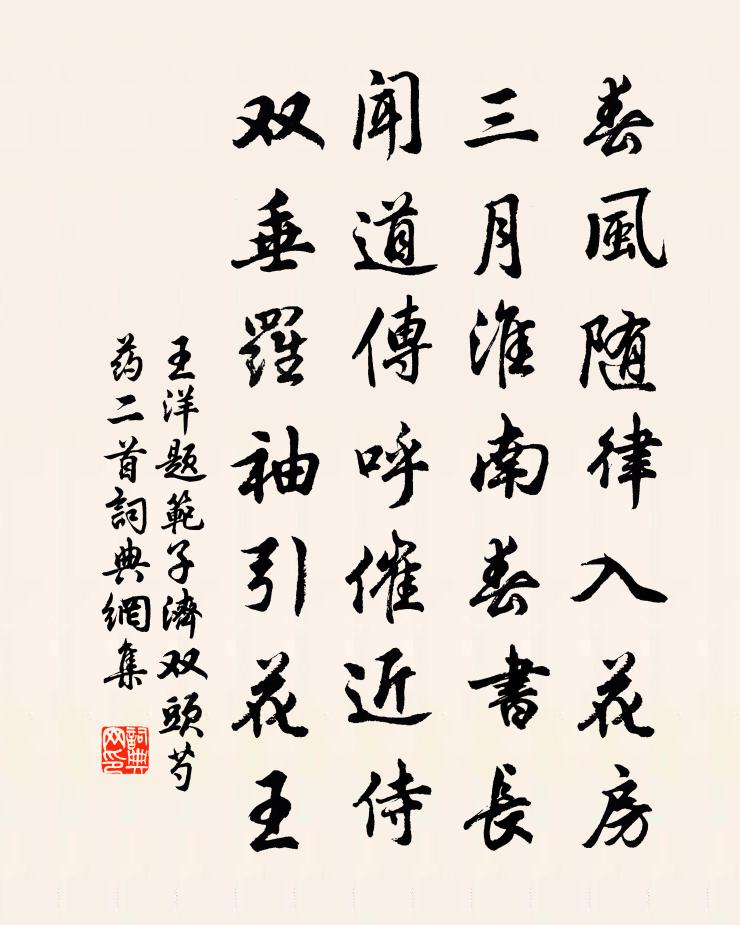 春風随律入花房
三月淮南春書長
闻道傳呼催近侍
双垂羅袖引花王
王洋题範子濟双頭芍
药二首詞典網集
詞典网印